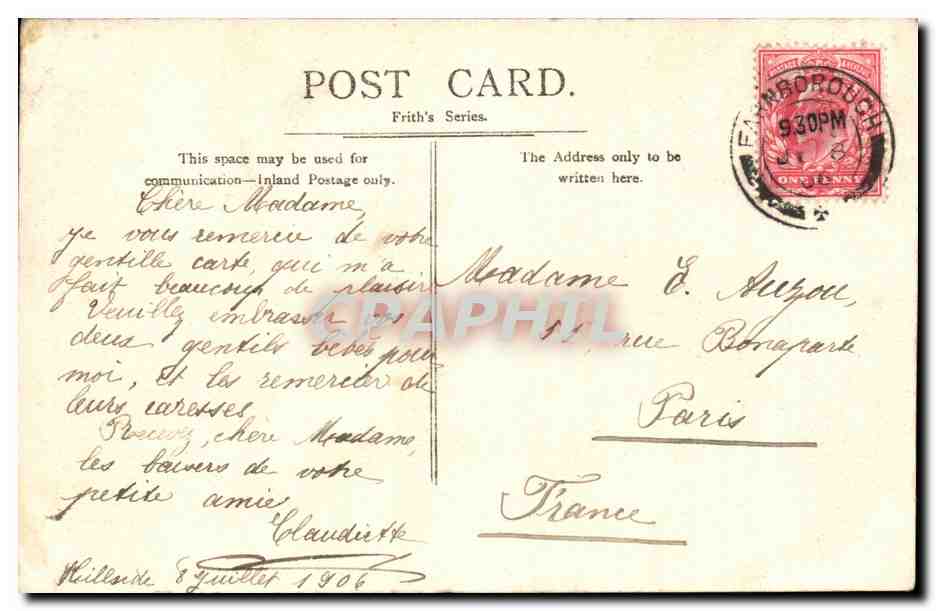 POST CARD.
Frith's Series.
This space may be used for
communication—Inland Postage only.
The Address only to be
written here.
FARNBOROUGH
9.30PM
JY 8
06
POSTAGE REVENUE
ONE PENNY
Chère Madame,
Je vous remercie de votre
gentille carte, qui m'a
fait beaucoup de plaisir
Veuillez embrasser vos
deux gentils bébés pour
moi, et les remercier de
leurs caresses
Recevez, chère Madame,
les baisers de votre
petite amie
Claudiette
Hillside 8 Juillet 1906
Madame E. Auzou,
rue Bonaparte
Paris
France
CPAPHIL